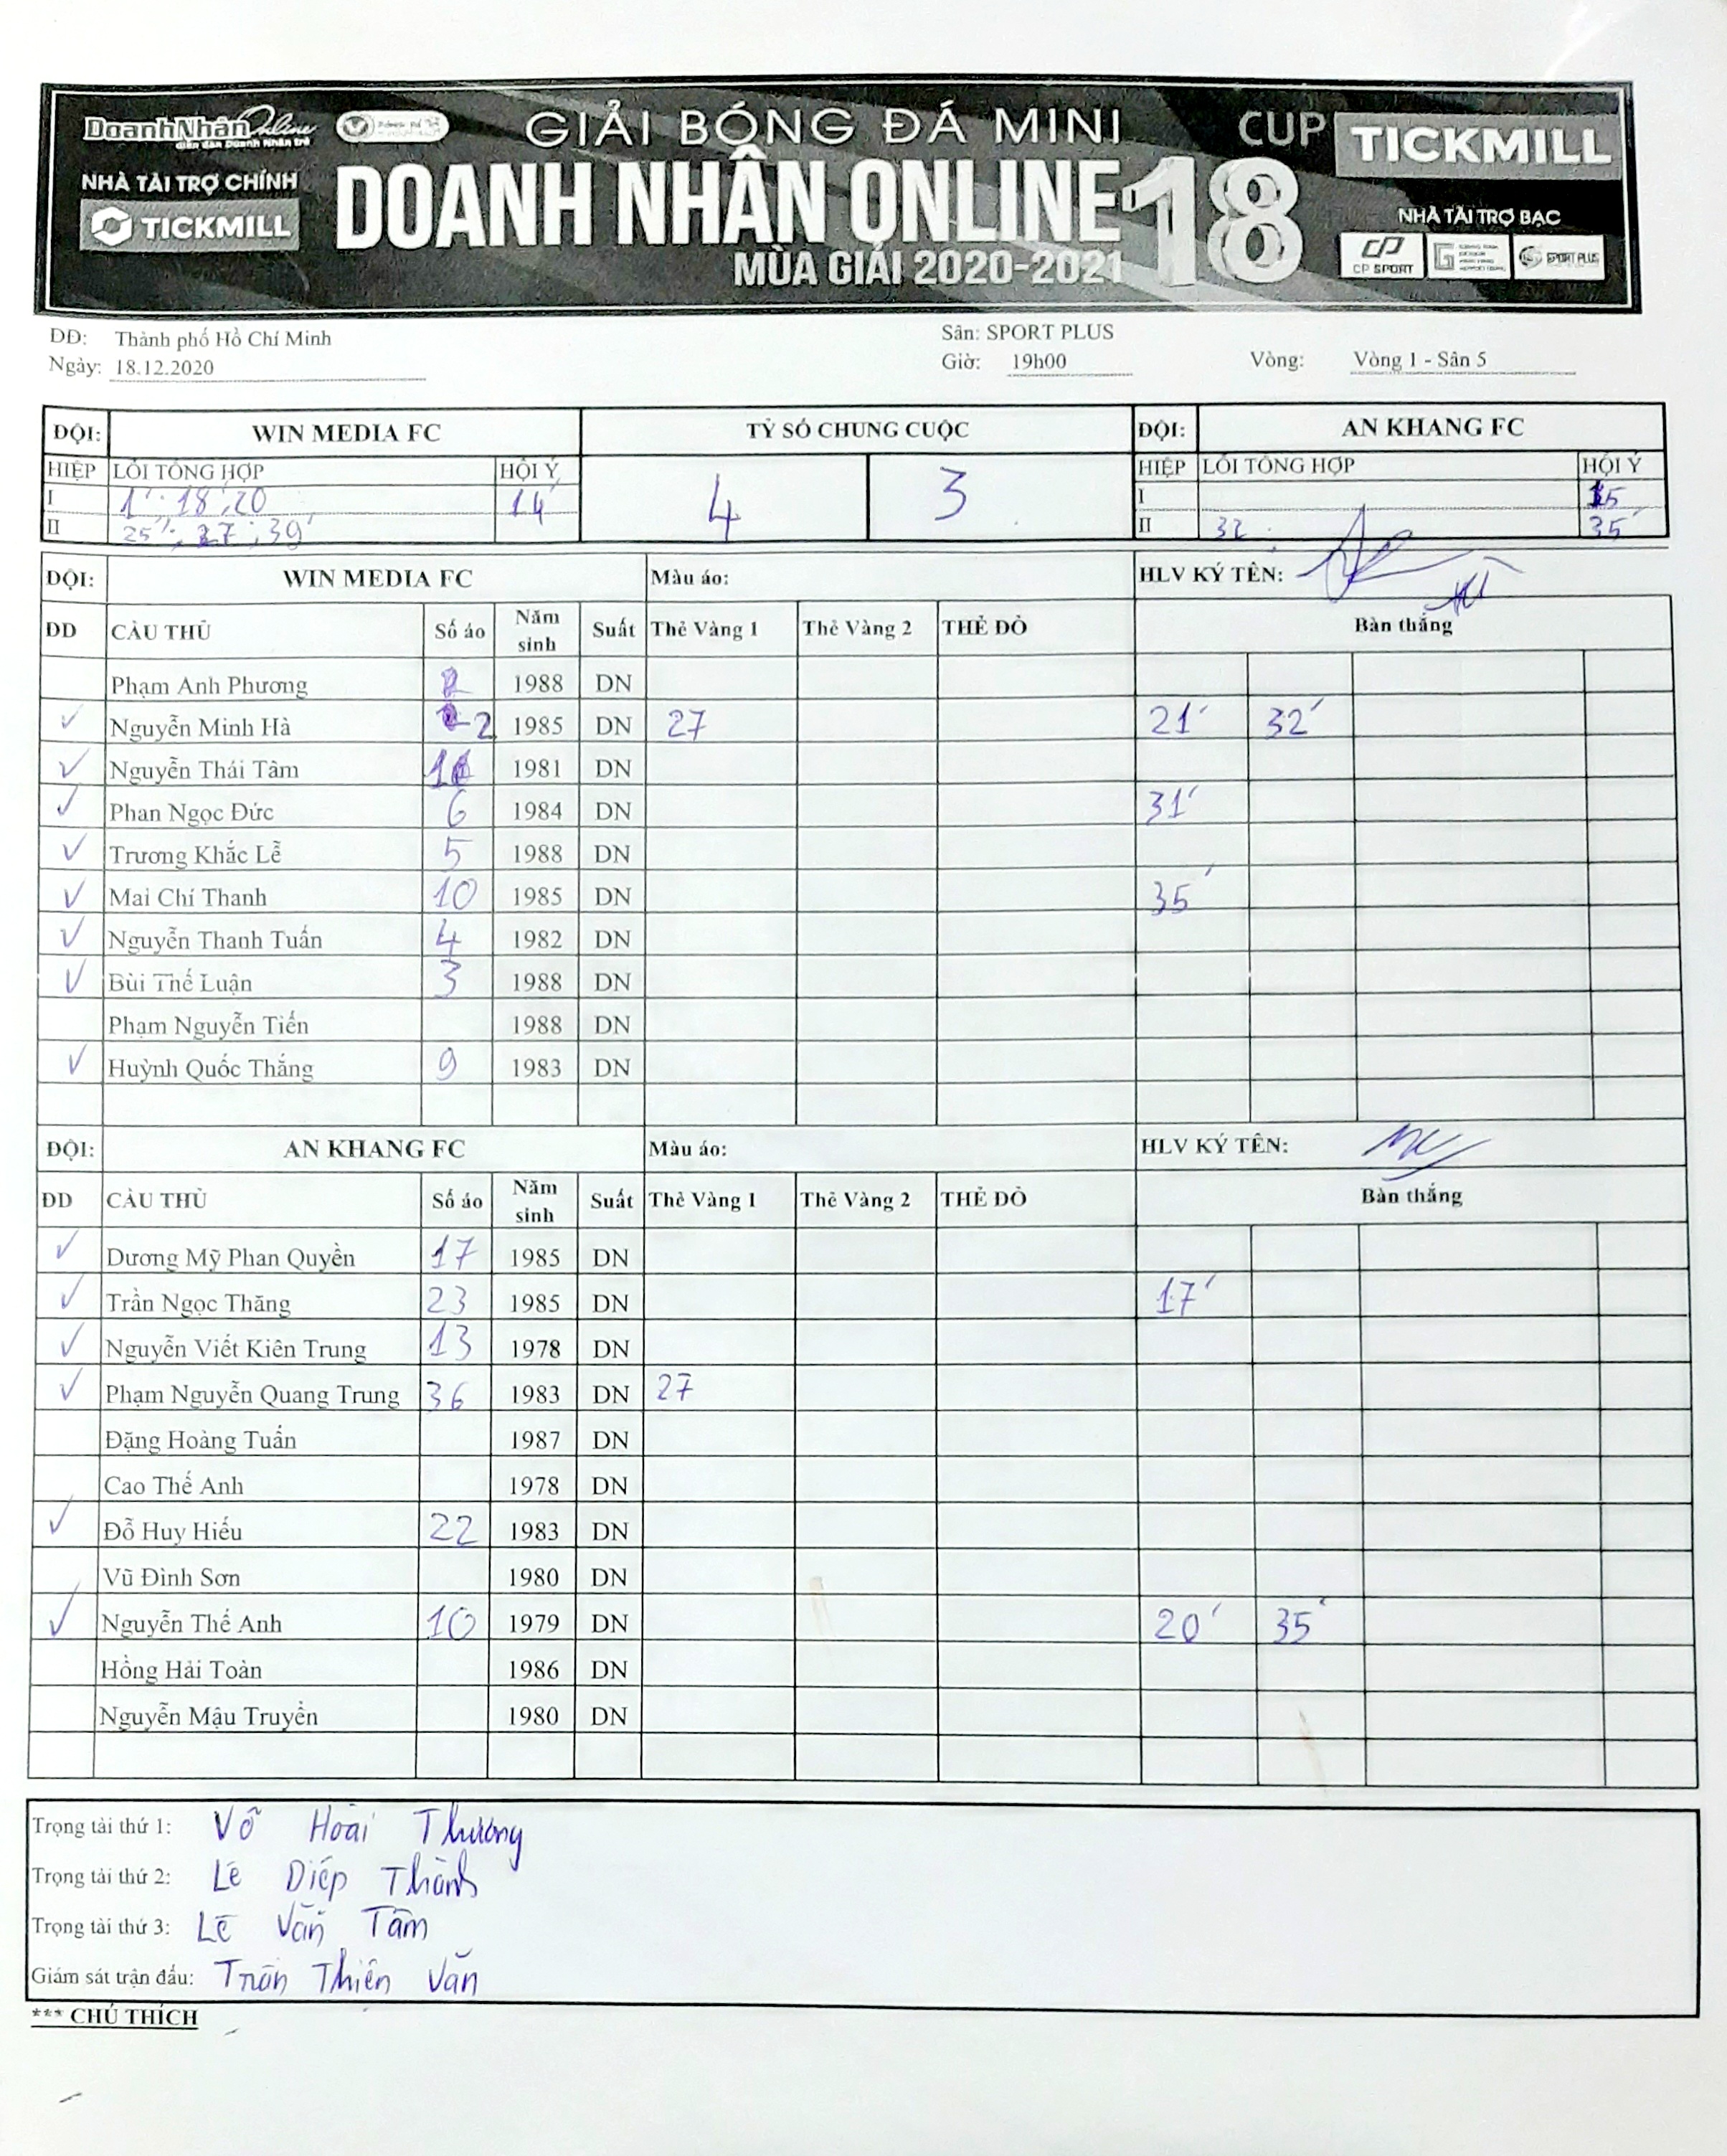 DoanhNhân Online GIẢI BÓNG ĐÁ MINI CUP TICKMILL
diễn đàn Doanh Nhân trẻ
NHÀ TÀI TRỢ CHÍNH DOANH NHÂN ONLINE 18 NHÀ TÀI TRỢ BẠC
TICKMILL MÙA GIẢI 2020-2021 CP SPORT SPORT PLUS
ĐĐ: Thành phố Hồ Chí Minh Sân: SPORT PLUS
Ngày: 18.12.2020 Giờ: 19h00 Vòng: Vòng 1 - Sân 5
ĐỘI: WIN MEDIA FC TỶ SỐ CHUNG CUỘC ĐỘI: AN KHANG FC
HIỆP LỖI TỔNG HỢP HỘI Ý 4 3 HIỆP LỖI TỔNG HỢP HỘI Ý
I 1'; 18; 20 14' I 15
II 25'; 27; 39' II 32 35'
ĐỘI: WIN MEDIA FC Màu áo: HLV KÝ TÊN:
DD CẦU THỦ Số áo Năm sinh Suất Thẻ Vàng 1 Thẻ Vàng 2 THẺ ĐỎ Bàn thắng
Phạm Anh Phương 1988 DN
✓ Nguyễn Minh Hà 2 1985 DN 27 21' 32'
✓ Nguyễn Thái Tâm 11 1981 DN
✓ Phan Ngọc Đức 6 1984 DN 31'
✓ Trương Khắc Lễ 5 1988 DN
✓ Mai Chí Thanh 10 1985 DN 35'
✓ Nguyễn Thanh Tuấn 4 1982 DN
✓ Bùi Thế Luận 3 1988 DN
Phạm Nguyễn Tiến 1988 DN
✓ Huỳnh Quốc Thắng 9 1983 DN
ĐỘI: AN KHANG FC Màu áo: HLV KÝ TÊN:
ĐD CẦU THỦ Số áo Năm sinh Suất Thẻ Vàng 1 Thẻ Vàng 2 THẺ ĐỎ Bàn thắng
✓ Dương Mỹ Phan Quyền 17 1985 DN
✓ Trần Ngọc Thăng 23 1985 DN 17'
✓ Nguyễn Viết Kiên Trung 13 1978 DN
✓ Phạm Nguyễn Quang Trung 36 1983 DN 27
Đặng Hoàng Tuấn 1987 DN
Cao Thế Anh 1978 DN
✓ Đỗ Huy Hiếu 22 1983 DN
Vũ Đình Sơn 1980 DN
✓ Nguyễn Thế Anh 10 1979 DN 20' 35'
Hồng Hải Toàn 1986 DN
Nguyễn Mậu Truyền 1980 DN
Trọng tài thứ 1: Võ Hoài Thương
Trọng tài thứ 2: Lê Diếp Thành
Trọng tài thứ 3: Lê Văn Tâm
Giám sát trận đấu: Trần Thiên Văn
*** CHÚ THÍCH